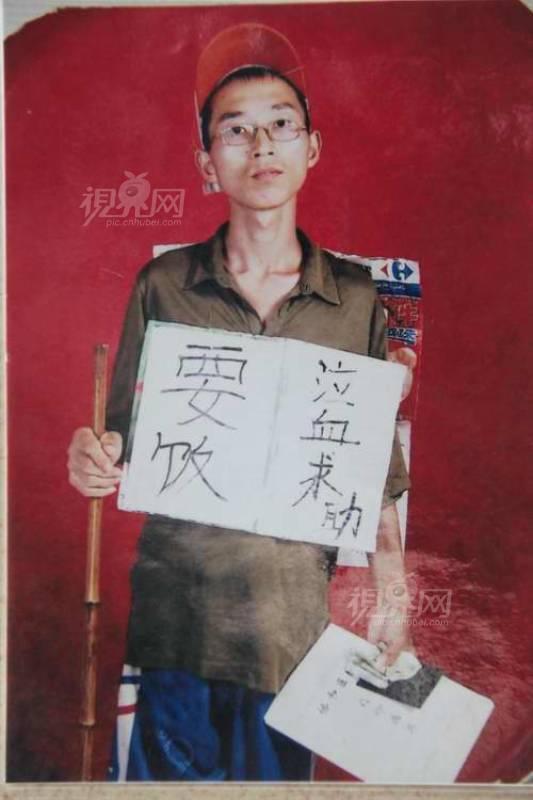 視界网
pic.cnhubei.com
要饭
泣血求助
視界网
pic.cnhubei.com